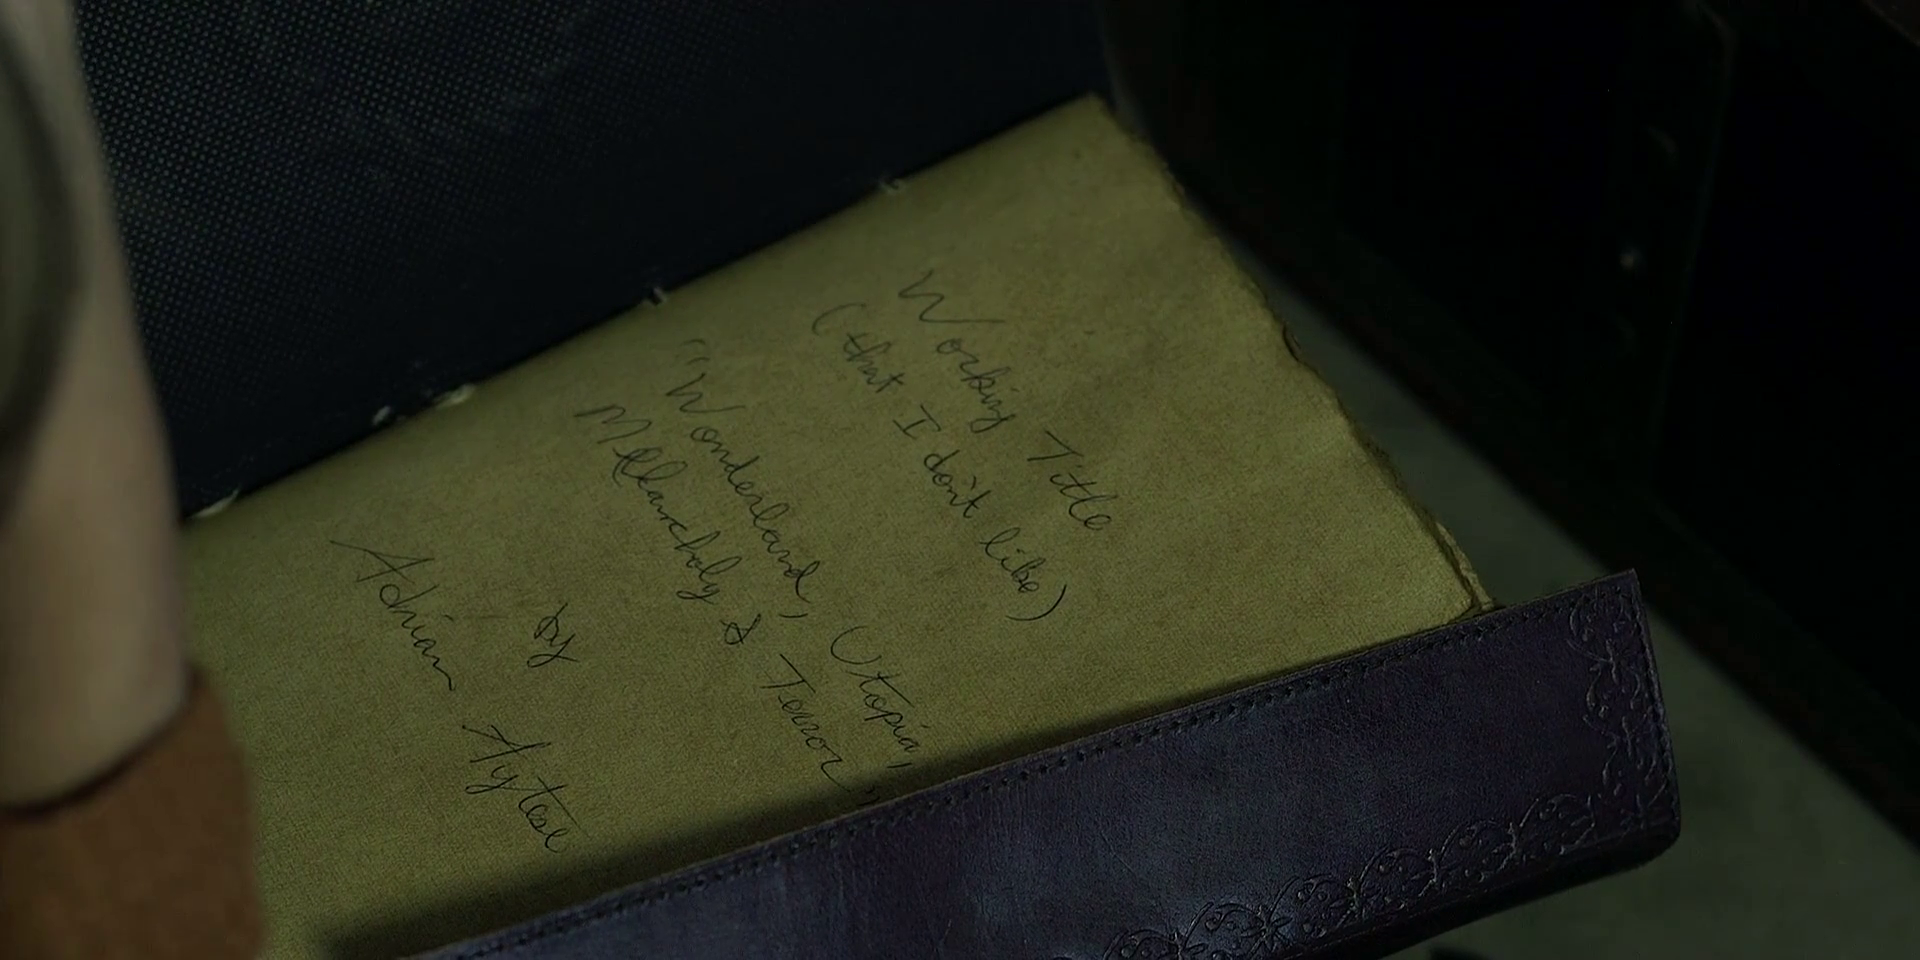 Working Title
(that I don't like)
"Wonderland, Utopia,
Mellancholy & Terror"
by
Adrian Aytese